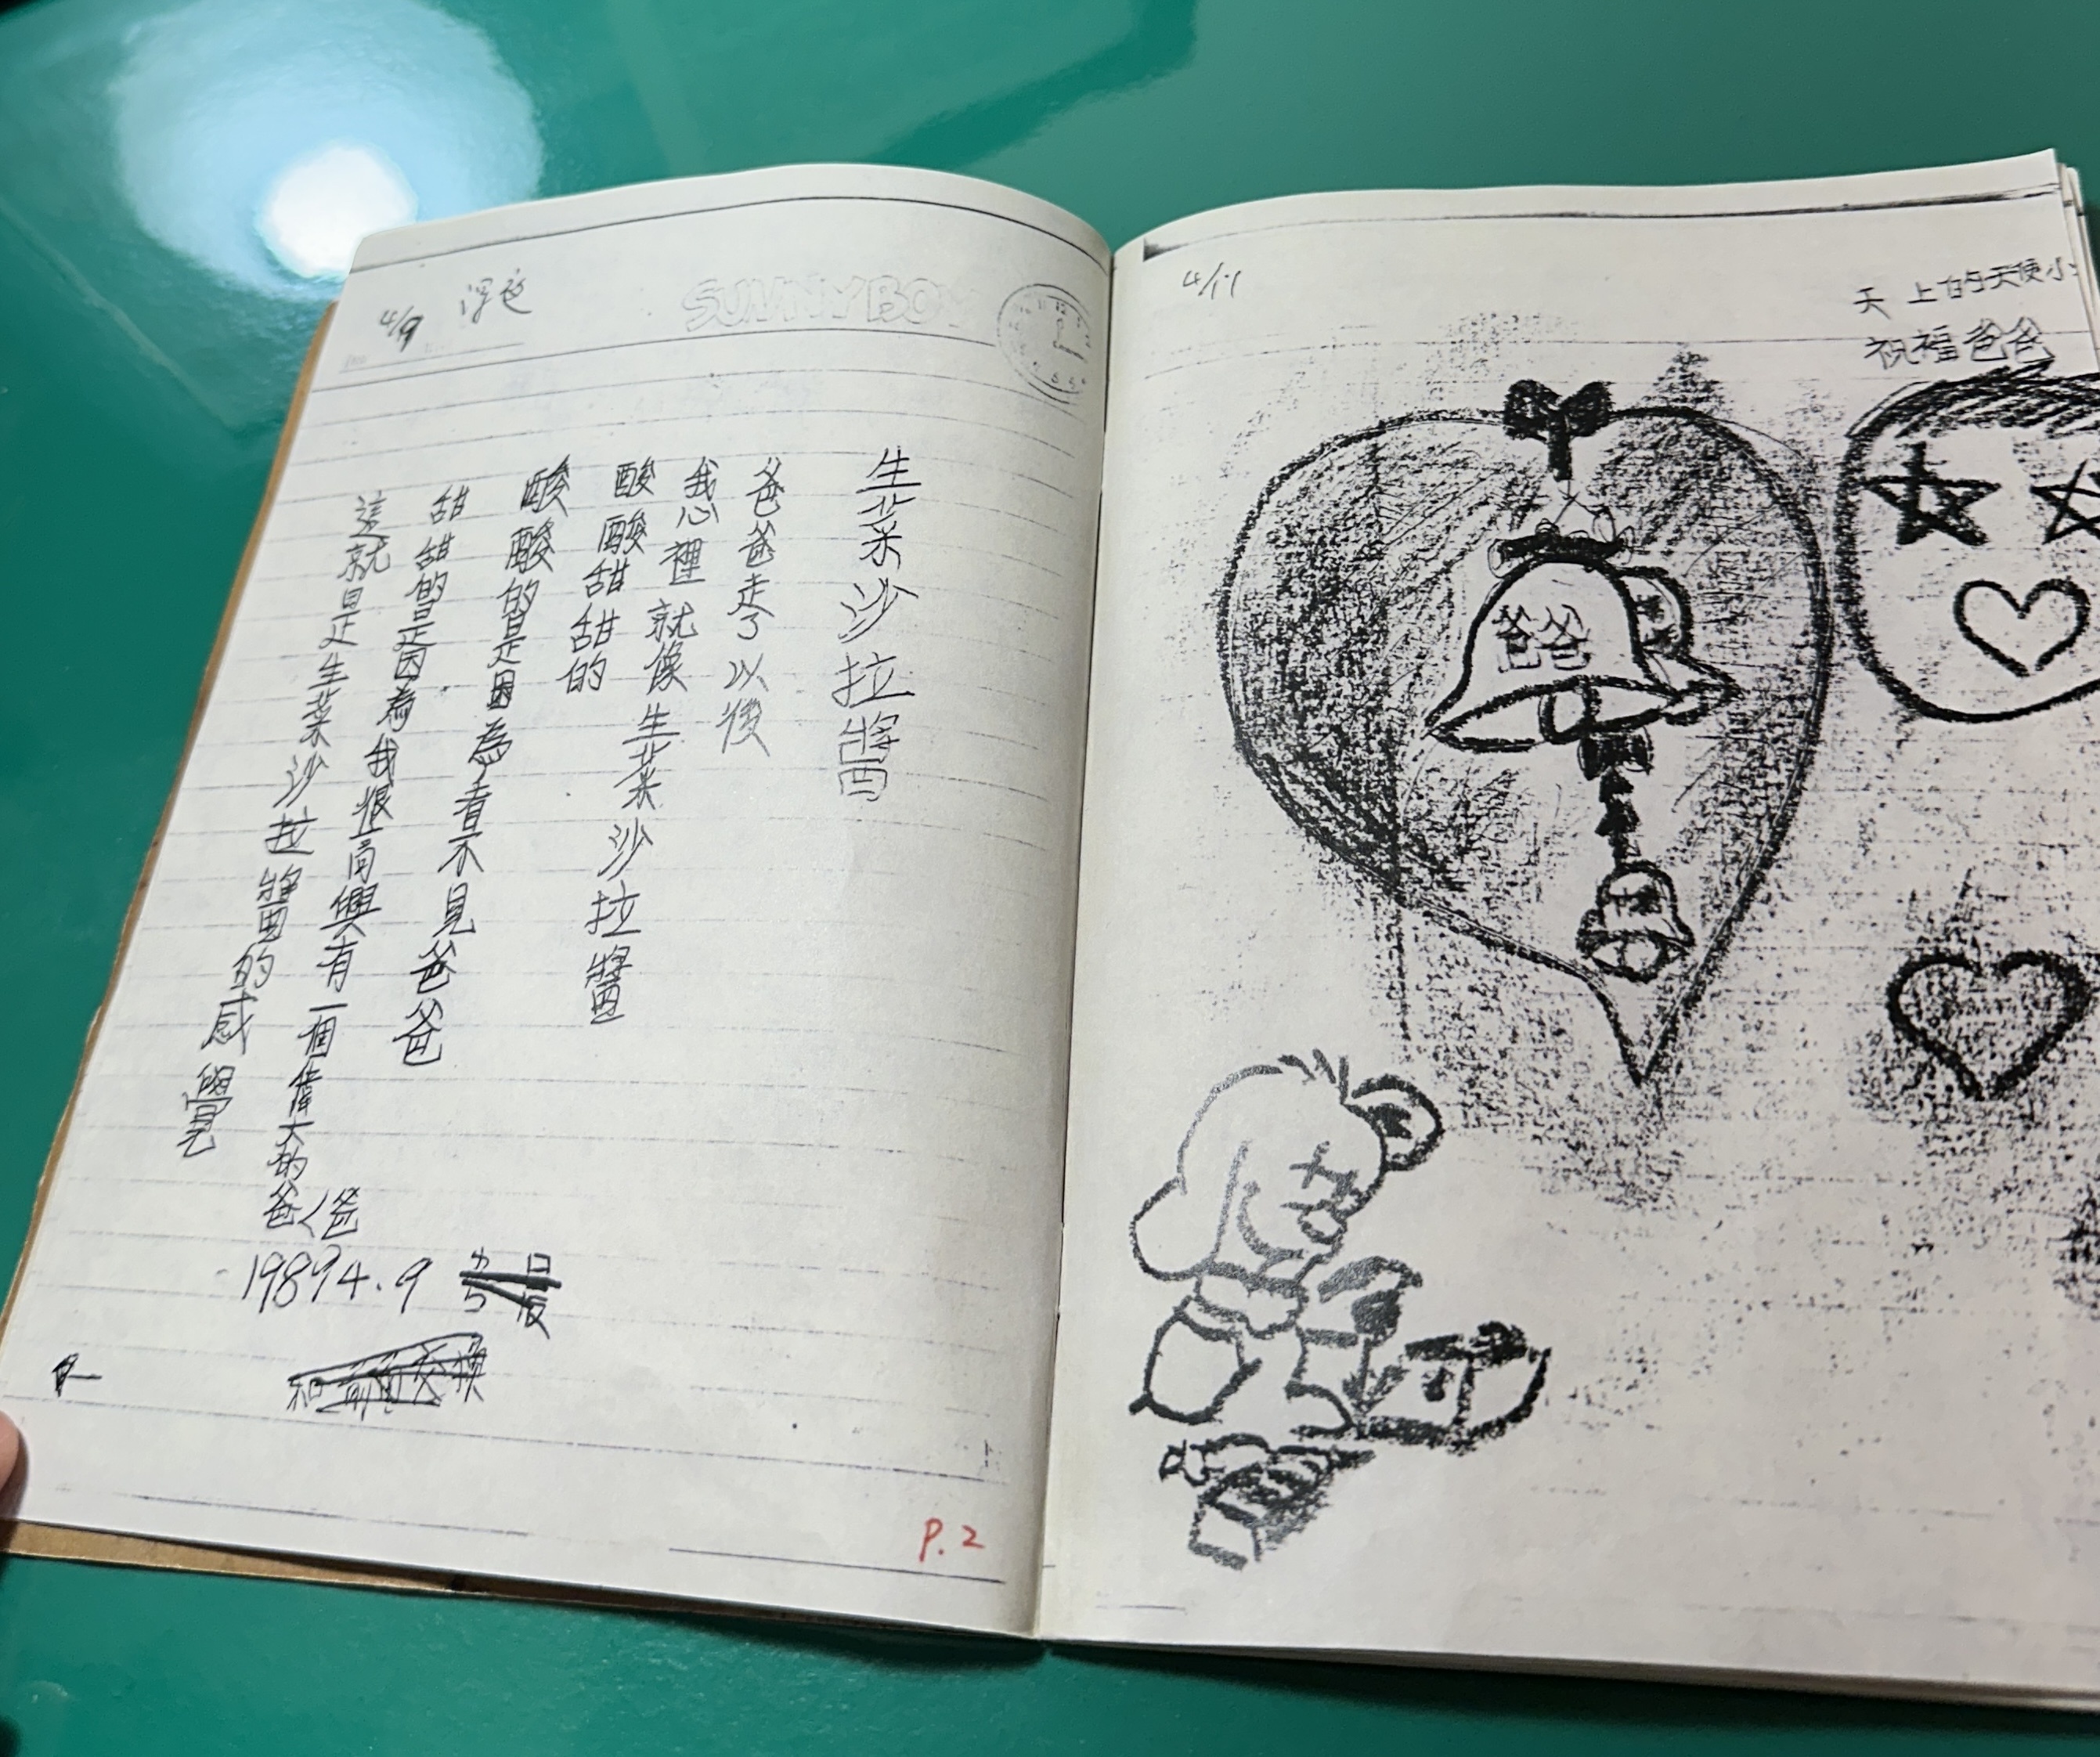 4/9 深夜
SUNNY BOY
生菜沙拉醬
爸爸走了以後
我心裡就像生菜沙拉醬
酸酸甜甜的
酸酸的是因為看不見爸爸
甜甜的是因為我很高興有一個偉大的爸爸
這就是生菜沙拉醬的感覺
1989 4.9
P.2
4/11
天上的天使小
祝福爸爸
爸爸